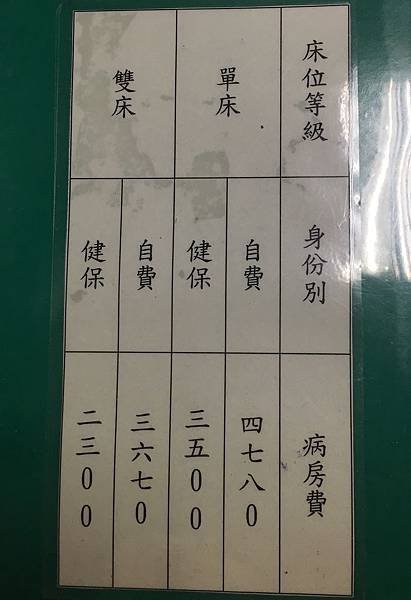 床位等級
身份別
病房費
單床
自費
四七八0
健保
三五00
雙床
自費
三六七0
健保
二三00